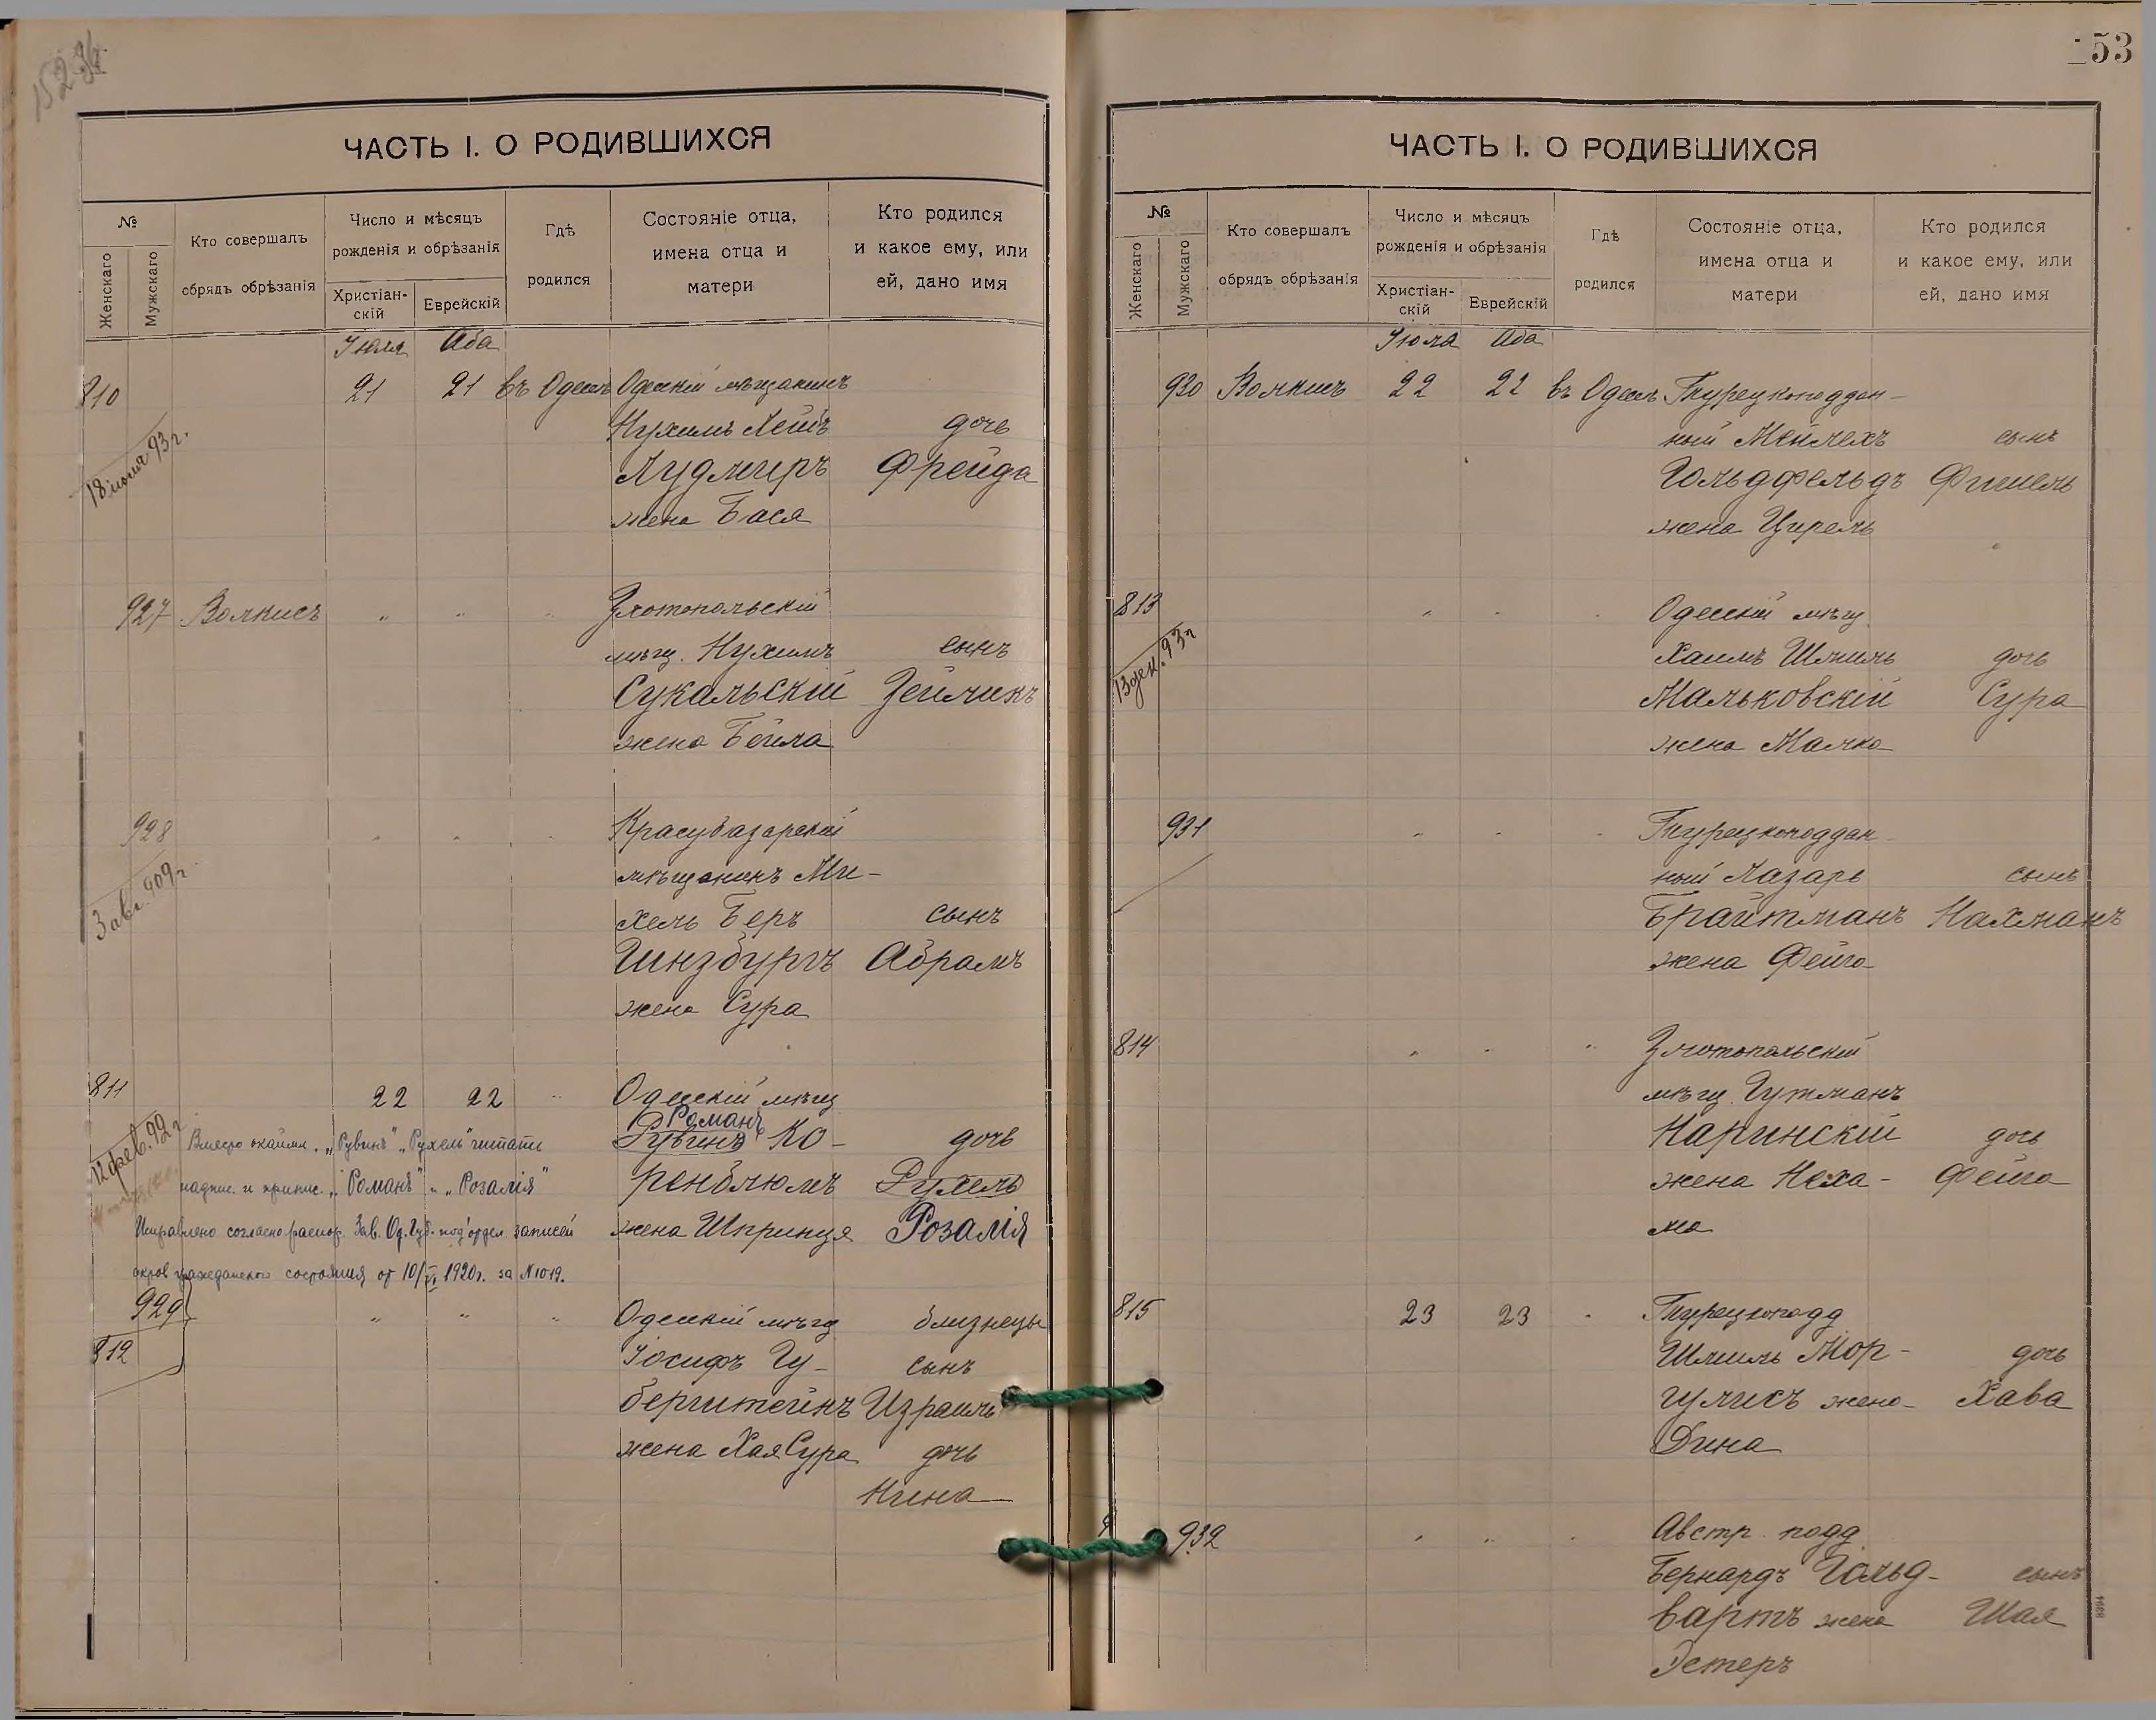 ЧАСТЬ I. О РОДИВШИХСЯ
№
Женскаго
Мужскаго
Кто совершалъ
обрядъ обрѣзанія
Число и мѣсяцъ
рожденія и обрѣзанія
Христіан-
скій
Еврейскій
Гдѣ
родился
Состояніе отца,
имена отца и
матери
Кто родился
и какое ему, или
ей, дано имя
Іюля Аба
810 21 21 въ Одессѣ Одесскій мѣщанинъ
18 іюня 93 г.
Нухимъ Лейбъ дочь
Лудмиръ Фрейда
жена Бася
927 Волкисъ " " " Златопольскій
мѣщ. Нухимъ сынъ
Сукальскій Зейликъ
жена Бейла
928 " " " Красубазарскій
3 авг. 909 г.
мѣщанинъ Ми-
хель Беръ сынъ
Гинзбургъ Абрамъ
жена Сура
811 22 22 " Одесскій мѣщ
12 фев. 92 г
Романъ
Рувинъ Ко- дочь
ренблюмъ Рухель
жена Шпринця Розалія
Вместо окайми. „Рувинъ" „Рухель" читать
надпис. и припис. „Романъ" и „Розалія"
Исправлено согласно распор. Зав. Од. Губ. под'отдел записей
актов гражданского состояния от 10/VI 1920 г. за №1019.
929 " " " Одесскій мѣщ близнецы
812 Іосифъ Гу- сынъ
бергштейнъ Израиль
жена Хая Сура дочь
Нина
53
ЧАСТЬ I. О РОДИВШИХСЯ
№
Женскаго
Мужскаго
Кто совершалъ
обрядъ обрѣзанія
Число и мѣсяцъ
рожденія и обрѣзанія
Христіан-
скій
Еврейскій
Гдѣ
родился
Состояніе отца,
имена отца и
матери
Кто родился
и какое ему, или
ей, дано имя
Іюля Аба
930 Волкисъ 22 22 въ Одессѣ Турецкоподдан-
ный Мейлехъ сынъ
Гольдфельдъ Фишель
жена Цирель
813 " " " Одесскій мѣщ.
13 дек. 93 г
Хаимъ Шмиль дочь
Мальковскій Сура
жена Малка
931 " " " Турецкоподдан-
ный Лазарь сынъ
Брайтманъ Нахманъ
жена Фейга
814 " " " Златопольскій
мѣщ. Гутманъ
Наринскій дочь
жена Неха- Фейга
ма
815 23 23 " Турецкоподд
Шмиль Мор- дочь
гулисъ жена Хава
Дина
932 " " " Австр. подд
Бернардъ Гольд- сынъ
вартъ жена Шая
Эстеръ